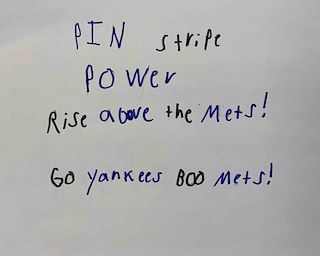 PIN stripe
POWer
Rise above the Mets!
Go yankees BOO Mets!